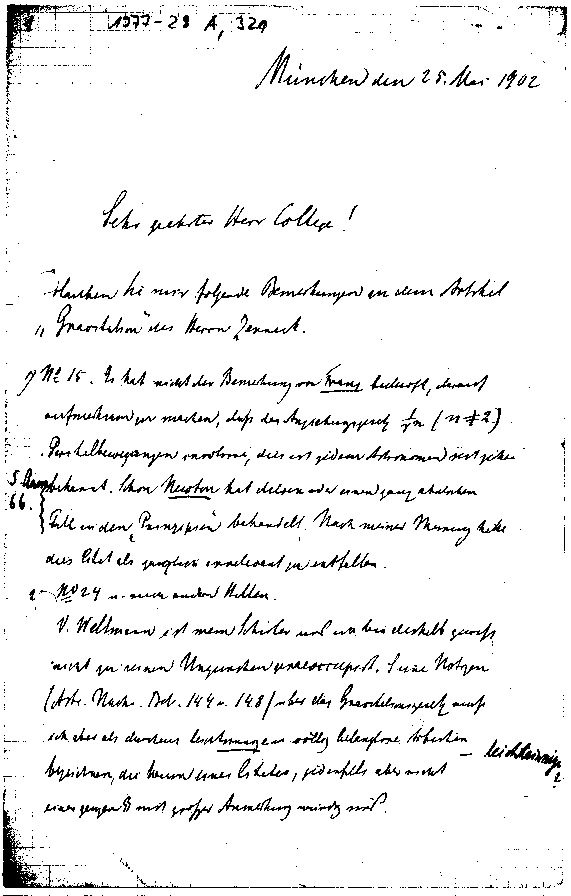 1977-28 A, 329
München den 25. Mai 1902
Sehr geehrter Herr College!
Gestatten Sie mir folgende Bemerkungen zu dem Artikel
„Gravitation" des Herrn Zenneck.
1) No 15. Es hat nicht der Bemerkung von Franz bedurft, darauf
aufmerksam zu machen, daß das Anziehungsgesetz 1/rⁿ (n ≠ 2)
Perihelbewegungen involvire, dies ist jedem Astronomen seit jeher
bekannt. Schon Newton hat diesen oder einen ganz ähnlichen
S. Anm
66.
Fall in den „Prinzipien" behandelt. Nach meiner Meinung hätte
dies Citat als gänzlich irrelevant zu entfallen.
2- No 24 u. auch andere Stellen.
V. Wellmann ist mein Schüler und ich bin deshalb gewiss
nicht zu seinen Ungunsten praeoccupirt. Seine Notizen
(Astr. Nachr. Bd. 144 u. 148) über das Gravitationsgesetz muß
ich aber als durchaus und völlig belanglose Arbeiten
leichtsinnige
?
bezeichnen, die kaum eines Citates, jedenfalls aber nicht
eines mit großer Anmerkung würdig sind.